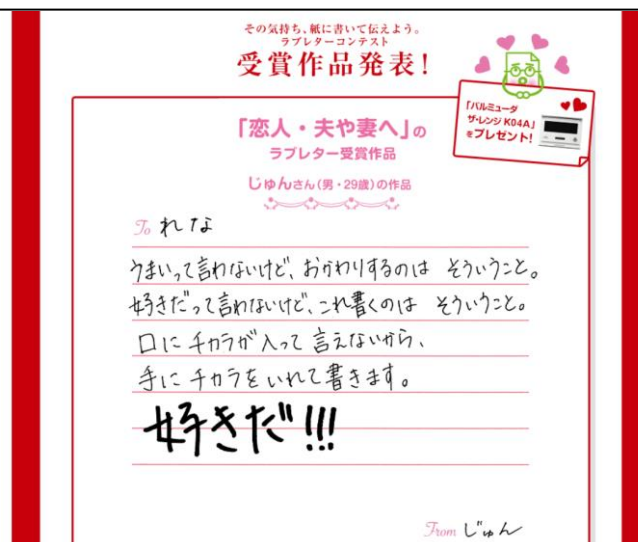 その気持ち、紙に書いて伝えよう。
ラブレターコンテスト
受賞作品発表!
「バルミューダ
ザ・レンジ K04A」
をプレゼント!
「恋人・夫や妻へ」の
ラブレター受賞作品
じゅんさん(男・29歳)の作品
To れな
うまいって言わないけど、おかわりするのは そういうこと。
好きだって言わないけど、これ書くのは そういうこと。
口に チカラが入って 言えないから、
手に チカラをいれて書きます。
好きだ!!!
From じゅん